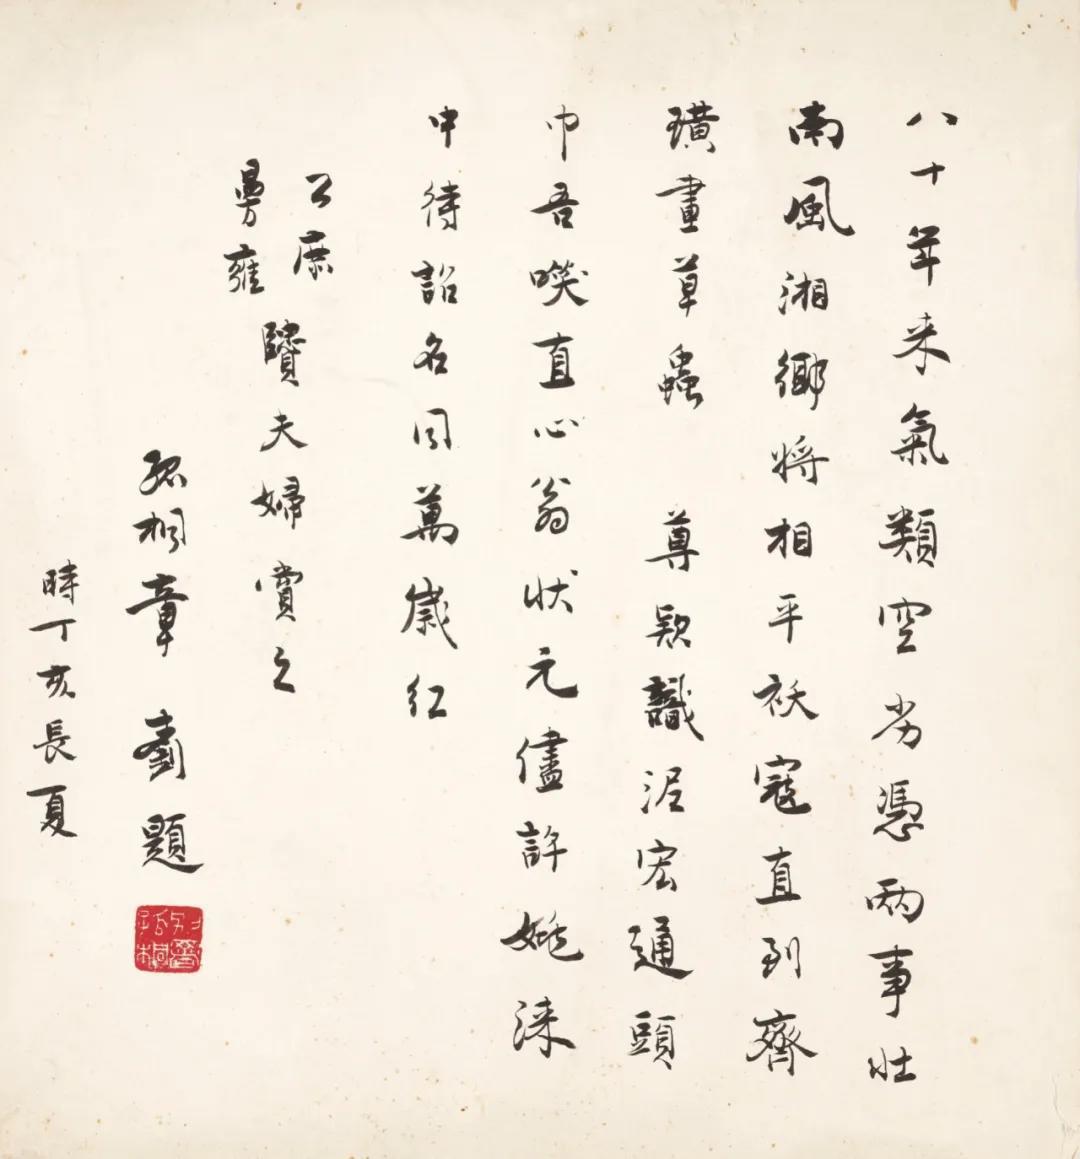 八十年来氣類空劣憑兩事壯
南風湘鄉將相平袄寇直到齊
璜畫草蟲 尊款識泥宏通頭
巾吾啖直心翁状元儘許姚涞
中待詔名同萬歲红
公庶
曼雍
賢夫婦賞之
孤桐章士釗題
時丁亥長夏